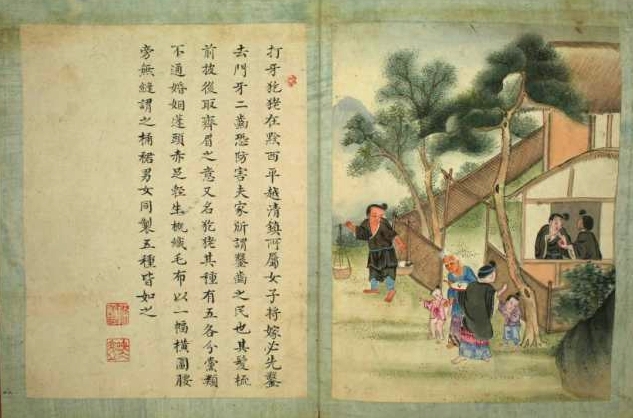 打牙犵狫在黔西平越清鎮所屬女子將嫁必先鑿
去門牙二齒恐防害夫家所謂鑿齒之民也其髮梳
前披後取齊眉之意又名犵狫其種有五各分黨類
不通婚姻蓬頭赤足輕生織毛布以一幅橫圍腰
旁無縫謂之桶裙男女同製五種皆如之